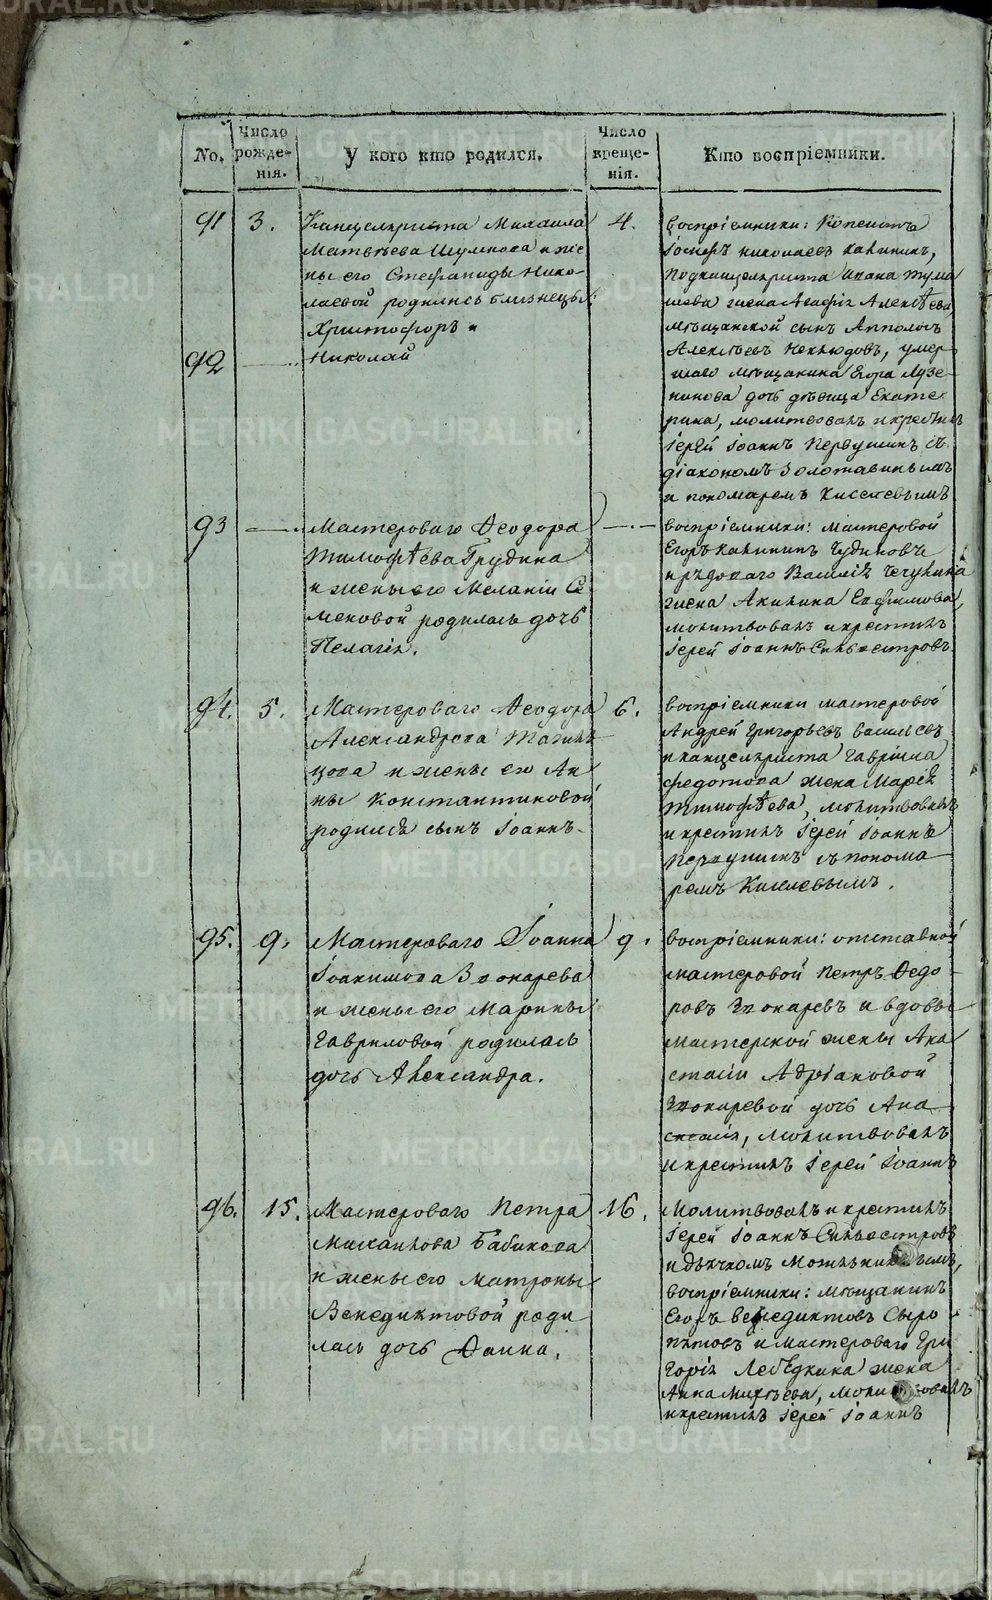 No.
Число рожде- нія.
У кого кто родился.
Число креще- нія.
Кто воспріемники.
91 3.
Канцеляриста Михаила
Матвѣева Шумкова и же
ны его Стефаниды Нико-
лаевой родились близнецы:
Христофоръ и
92
Николай
4.
воспріемники: Копеистъ
Іосифъ Николаевъ Калинин,
Подканцеляриста Ивана
жена Агафія Алексѣева,
мѣщанской сынъ Апполосъ
Алексѣевъ Неклюдовъ, умер
шаго мѣщанина Егора Лузе-
никова дочь дѣвица Екате-
рина, молитвовалъ и крестилъ
Іерей Іоаннъ Первушинъ съ
діакономъ Золотавинымъ
и пономаремъ Киселевымъ
93
Мастероваго Ѳеодора
Тимофѣева Грудина
и жены его Меланіи Се
меновой родилась дочь
Пелагія.
воспріемники: мастеровой
Егоръ Калинин Чудиновъ
и рядоваго Василія
жена Акилина Евфимова,
молитвовалъ и крестилъ
Іерей Іоаннъ Сильвестровъ
94. 5.
Мастероваго Ѳеодора
Александрова
цова и жены его Ан
ны Константиновой
родился сынъ Іоаннъ.
6.
воспріемники мастеровой
Андрей Григорьевъ Васильевъ
и канцеляриста Гавріила
Федотова жена Марѳа
Тимофѣева, молитвовалъ
и крестилъ Іерей Іоаннъ
Первушинъ съ понома
ремъ Киселевымъ.
95. 9.
Мастероваго Іоанна
Іоакимова Зюкарева
и жены его Марины
Гавриловой родилась
дочь Александра.
9.
воспріемники: отставной
мастеровой Петръ Ѳедо-
ровъ Зюкаревъ и вдовы
мастерской жены Ана
стасіи Адріановой
Зюкаревой дочь Ана
стасія, молитвовалъ
и крестилъ Іерей Іоаннъ
96. 15.
Мастероваго Петра
Михаилова Бабикова
и жены его Матроны
Венедиктовой роди
лась дочь Фаина.
16.
Молитвовалъ и крестилъ
Іерей Іоаннъ Сильвестровъ
и дьячкомъ
воспріемники: мѣщанинъ
Егоръ Венедиктовъ Сыро
пятовъ и мастероваго Гри
горія Лебедкина жена
Анна молитвовалъ
и крестилъ Іерей Іоаннъ
METRIKI.GASO-URAL.RU